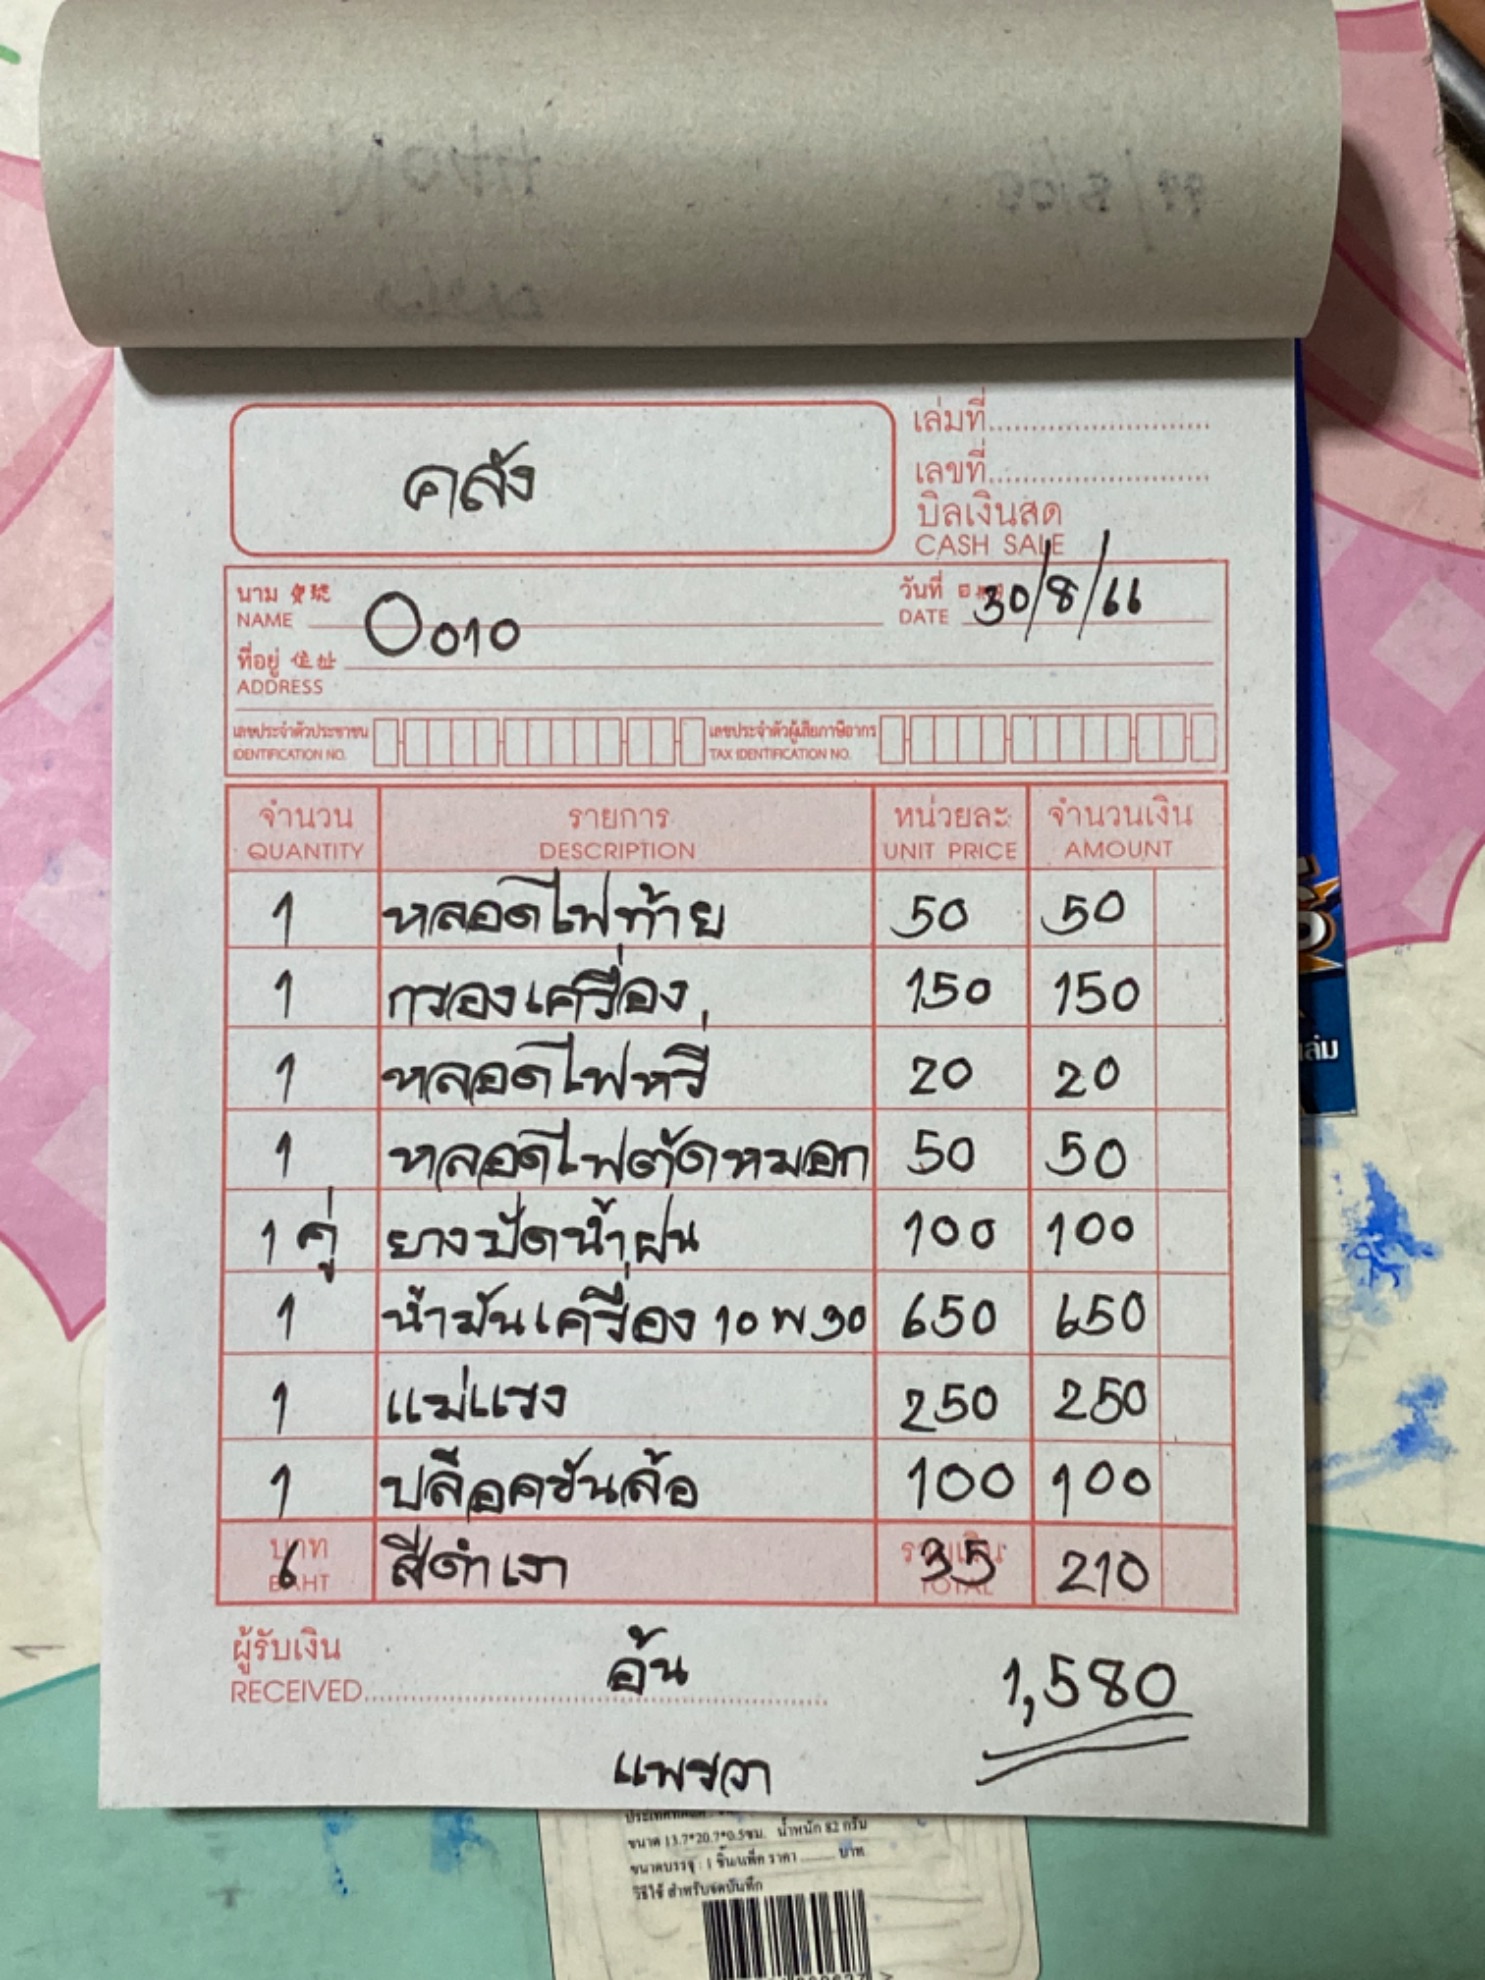 คลัง
เล่มที่
เลขที่
บิลเงินสด
CASH SALE
นาม
NAME
O010
วันที่ 30/8/66
DATE
ที่อยู่ 住址
ADDRESS
เลขประจำตัวประชาชน เลขประจำตัวผู้เสียภาษีอากร
IDENTIFICATION NO. TAX IDENTIFICATION NO.
จำนวน รายการ หน่วยละ จำนวนเงิน
QUANTITY DESCRIPTION UNIT PRICE AMOUNT
1 หลอดไฟท้าย 50 50
1 กรองเครื่อง 150 150
1 หลอดไฟหรี่ 20 20
1 หลอดไฟตัดหมอก 50 50
1 คู่ ยางปัดน้ำฝน 100 100
1 น้ำมันเครื่อง 10W30 650 650
1 แม่แรง 250 250
1 บล็อคขันล้อ 100 100
บาท รวมเงิน
6 สีดำเงา 35 210
BAHT TOTAL
ผู้รับเงิน
RECEIVED อ้น 1,580
แพรวา
ขนาด 13.7*20.7*0.5ซม. น้ำหนัก 82 กรัม
ขนาดบรรจุ : 1 ชิ้น/แพ็ค ราคา ......... บาท
วิธีใช้ สำหรับจดบันทึก